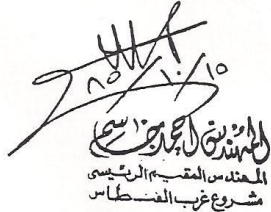 ٨٥/١٠/١٥
المهندس احمد جاسم
المهندس المقيم الرئيسى
مشروع غرب الفنطاس